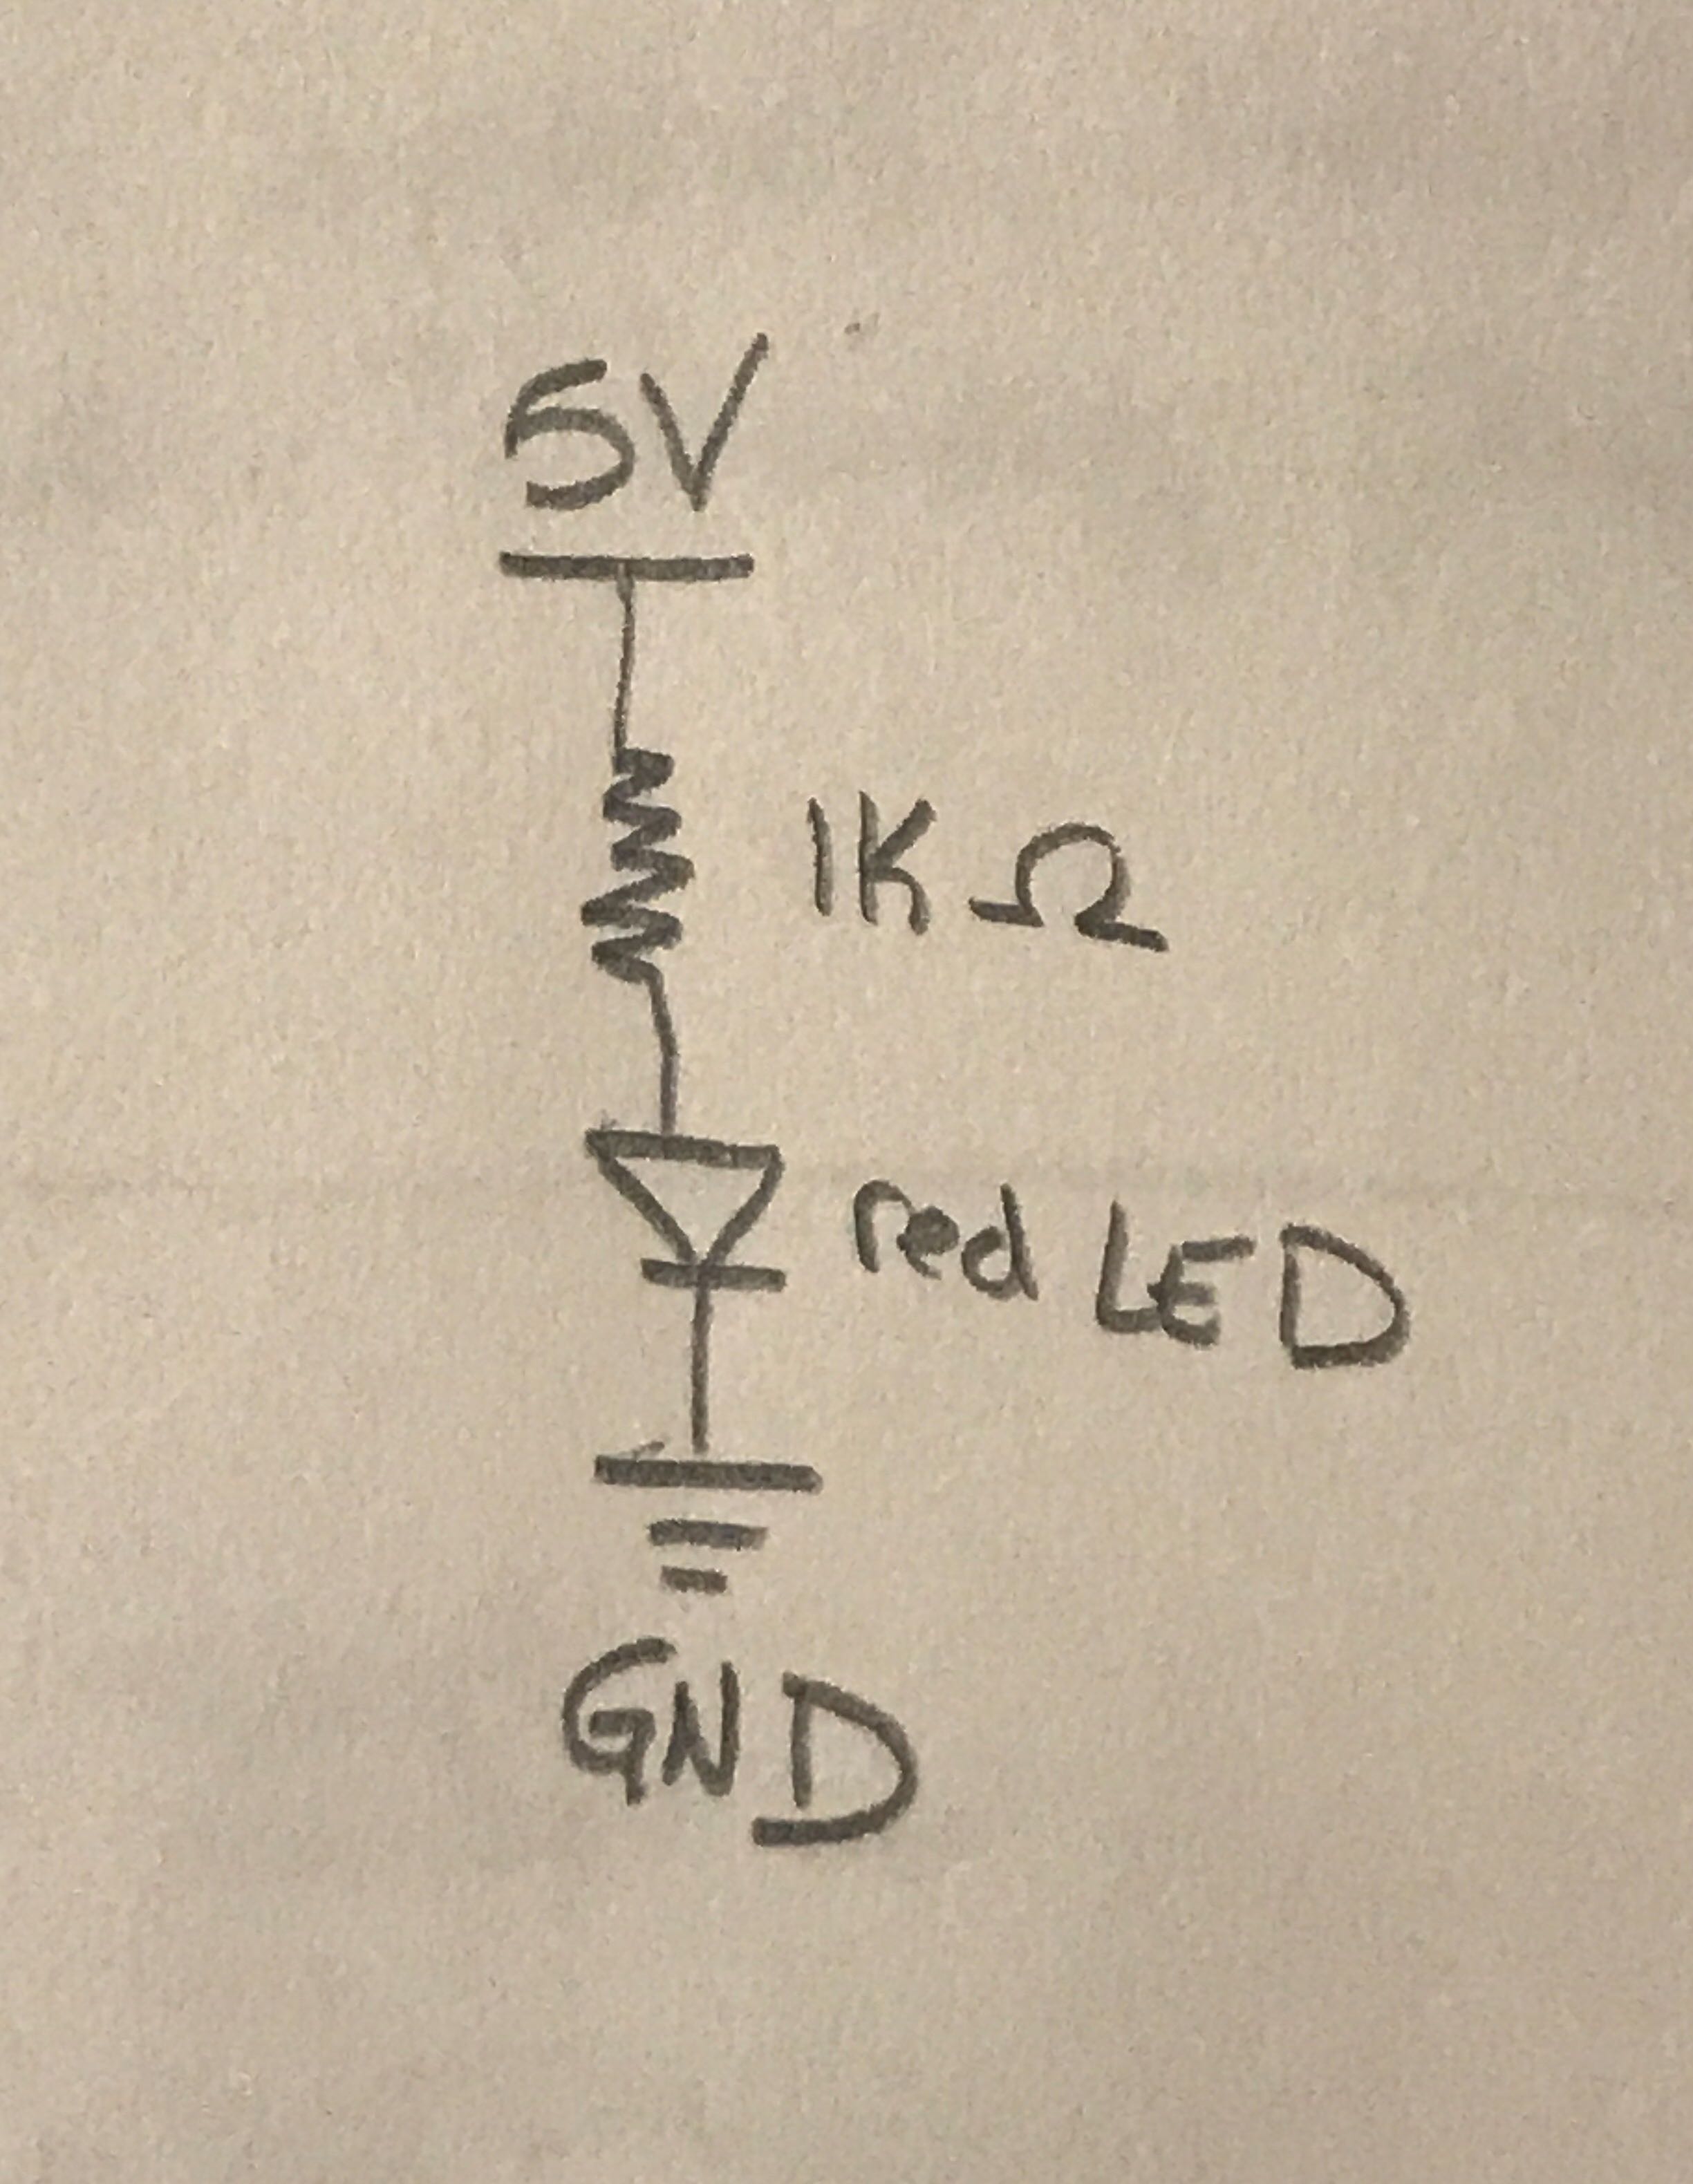 5V
1K Ω
red LED
GND